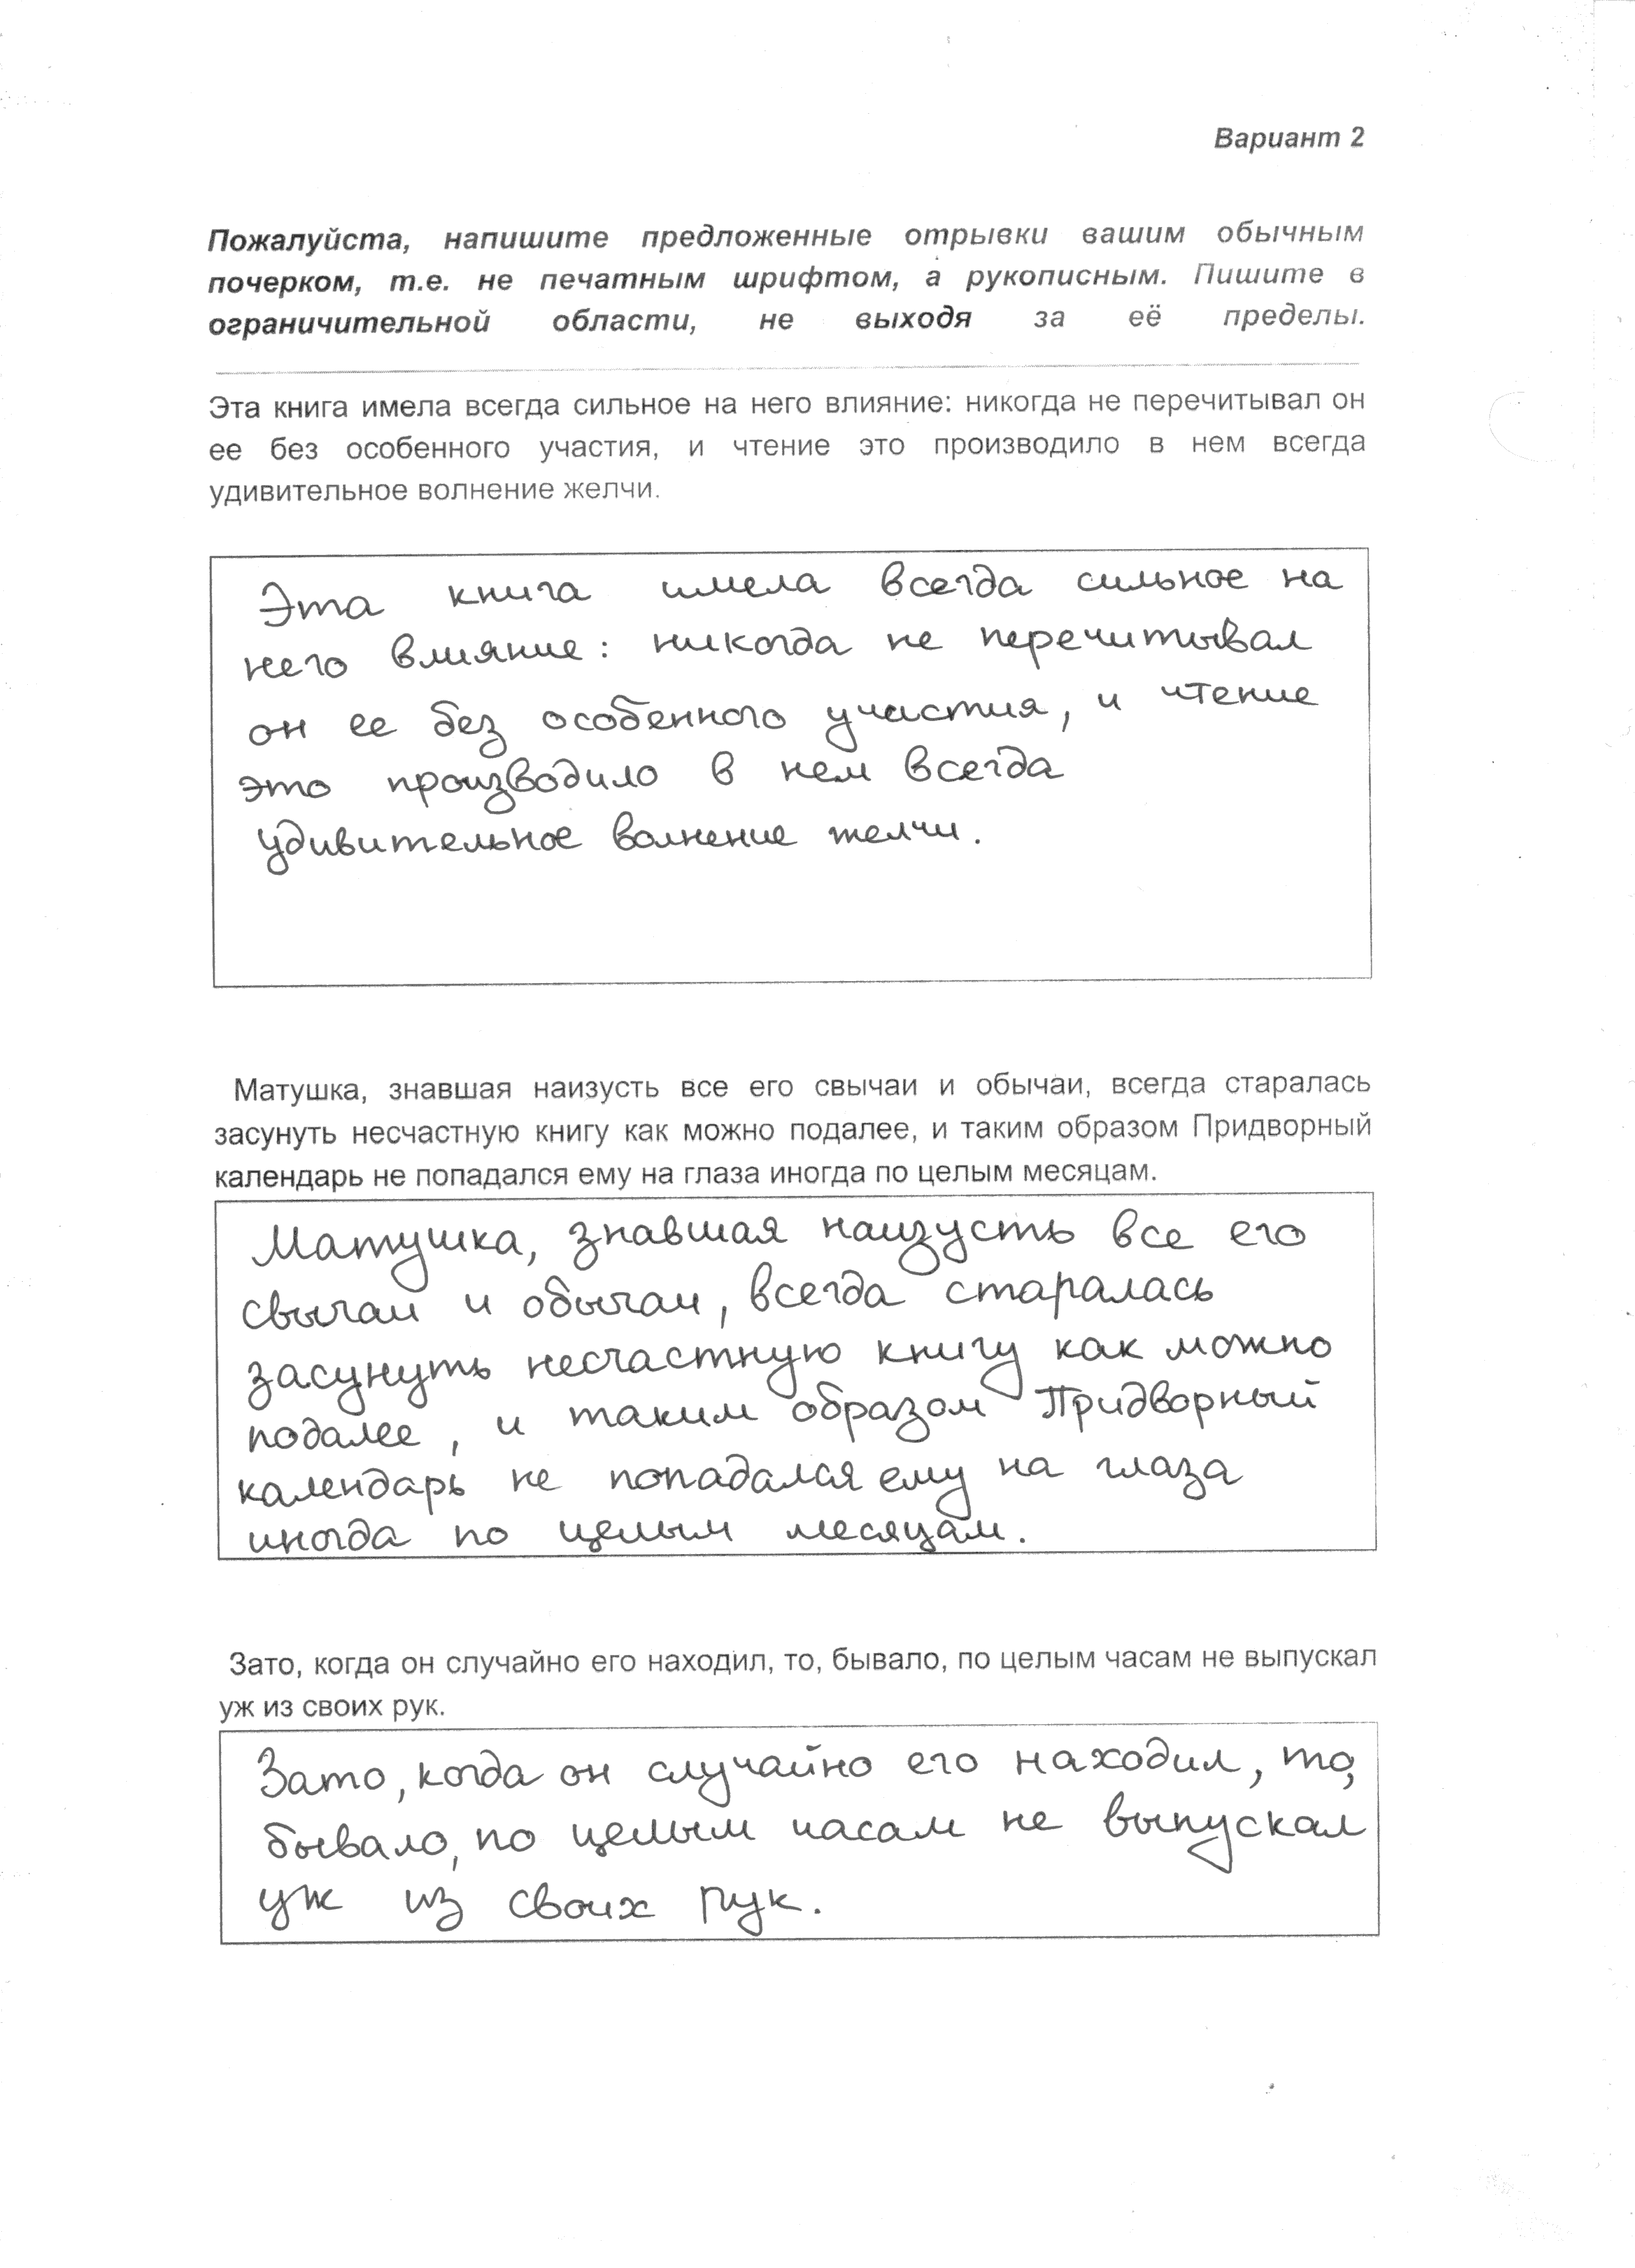 Вариант 2
Пожалуйста, напишите предложенные отрывки вашим обычным
почерком, т.е. не печатным шрифтом, а рукописным. Пишите в
ограничительной области, не выходя за её пределы.
Эта книга имела всегда сильное на него влияние: никогда не перечитывал он
ее без особенного участия, и чтение это производило в нем всегда
удивительное волнение желчи.
Эта книга имела всегда сильное на
него влияние: никогда не перечитывал
он ее без особенного участия, и чтение
это производило в нем всегда
удивительное волнение желчи.
Матушка, знавшая наизусть все его свычаи и обычаи, всегда старалась
засунуть несчастную книгу как можно подалее, и таким образом Придворный
календарь не попадался ему на глаза иногда по целым месяцам.
Матушка, знавшая наизусть все его
свычаи и обычаи, всегда старалась
засунуть несчастную книгу как можно
подалее, и таким образом Придворный
календарь не попадался ему на глаза
иногда по целым месяцам.
Зато, когда он случайно его находил, то, бывало, по целым часам не выпускал
уж из своих рук.
Зато, когда он случайно его находил, то,
бывало, по целым часам не выпускал
уж из своих рук.